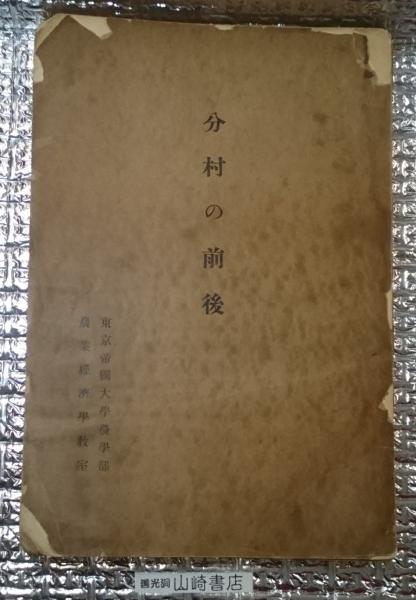 分村の前後
東京帝國大學農學部
農業經濟學教室
鶉光洞 山崎書店